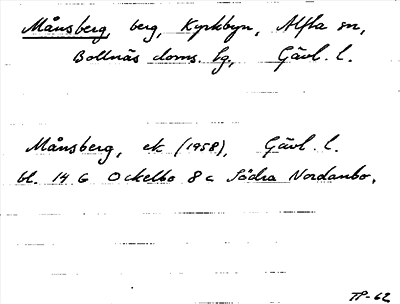 Månsberg, berg, Kyrkbyn, Alfta sn,
Bollnäs doms. hg., Gävl. l.
Månsberg, ek (1958), Gävl. l.
bl. 14 G Ockelbo 8 c Södra Nordanbo.
TP-62